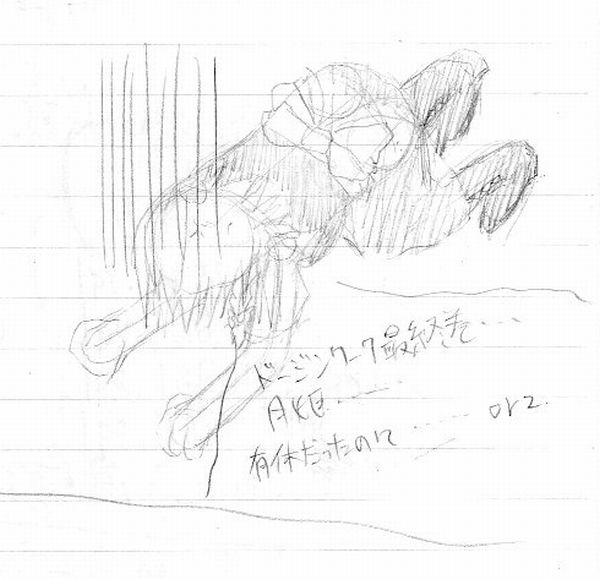 ドージンワーク最終巻・・・
月姫・・・・・
有休だったのに・・・・・ orz